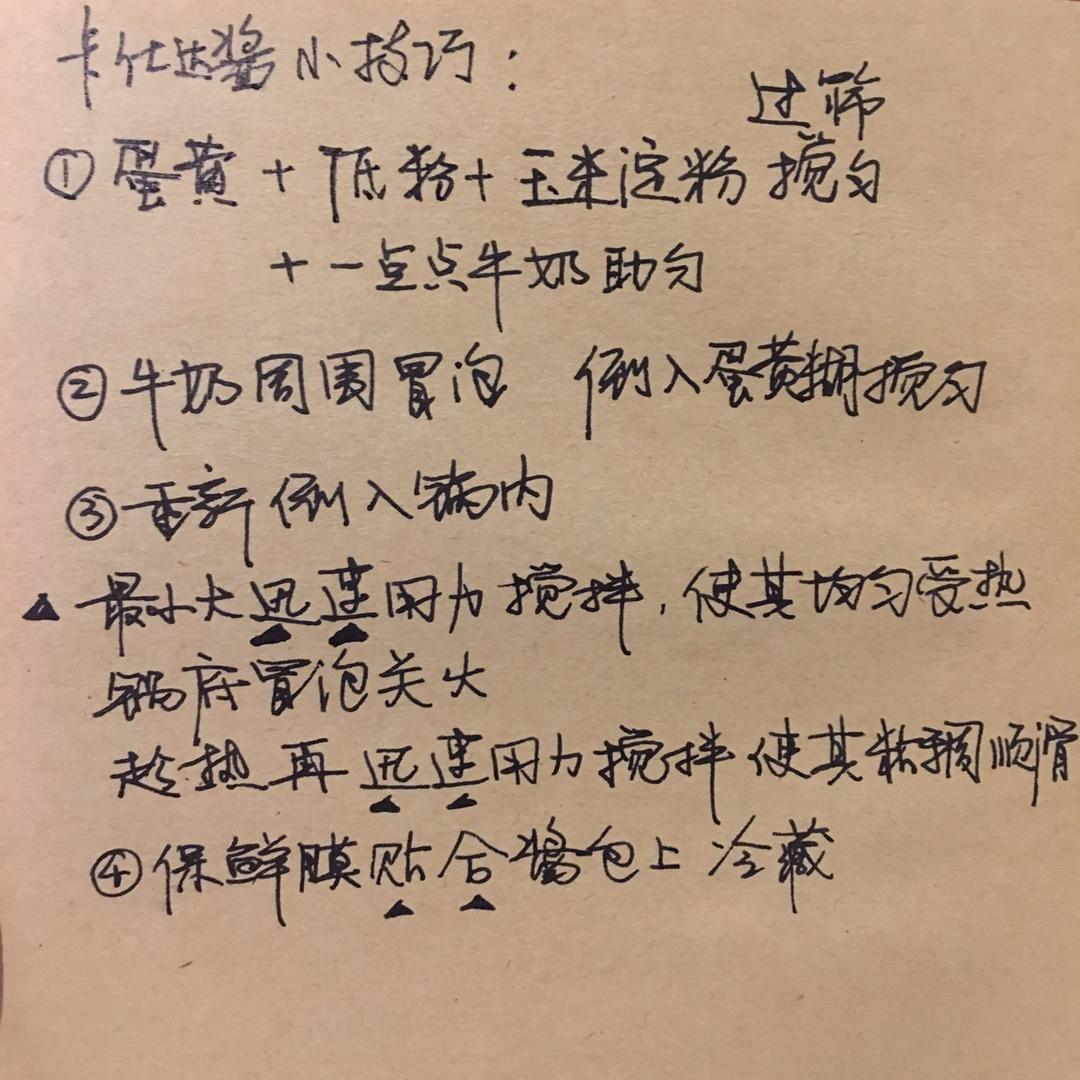 卡仕达酱小技巧:
过筛
①蛋黄+低粉+玉米淀粉搅匀
+一点点牛奶助匀
②牛奶周围冒泡 倒入蛋黄糊搅匀
③重新倒入锅内
▲最小火迅速用力搅拌,使其均匀受热
锅底冒泡关火
趁热再迅速用力搅拌使其粘稠顺滑
④保鲜膜贴合酱包上冷藏